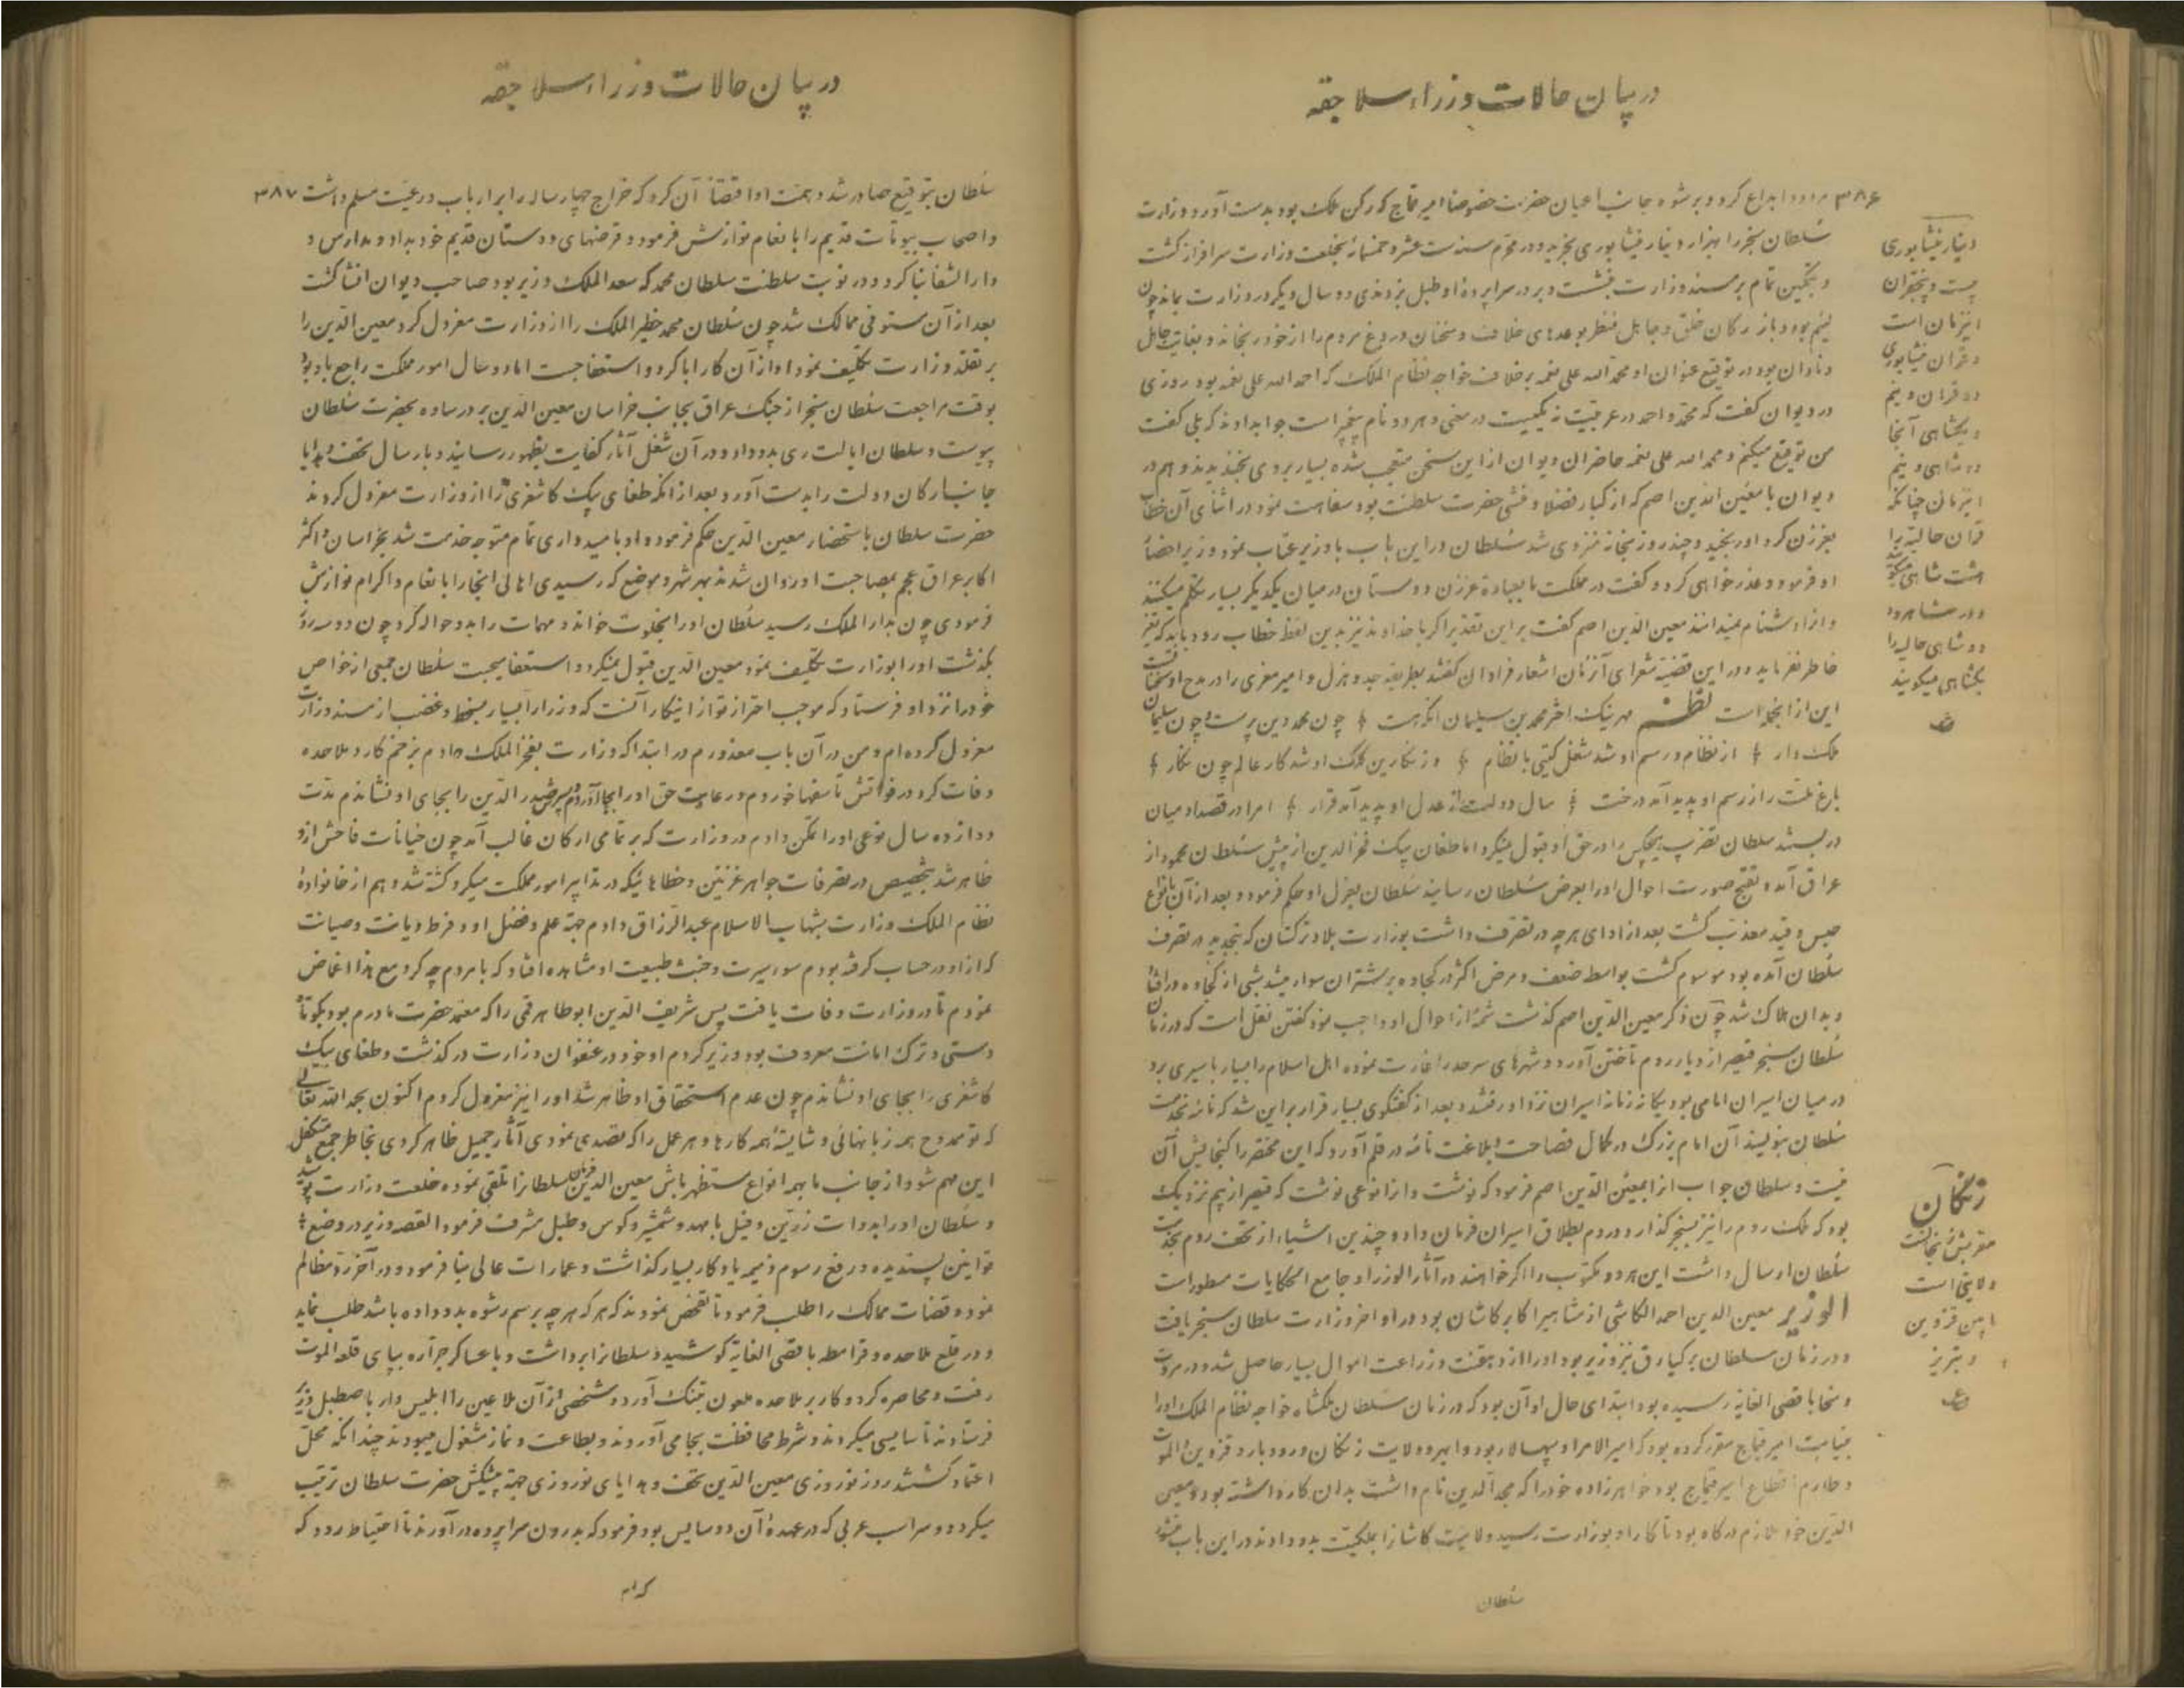 در بیان حالات وزراء سلاجقه
۳۸۶ ابداع کرد و برشوه جانب اعیان حضرت خصوصا امیر قماج که رکن ملک بود بدست آورد و وزارت
سلطان سنجر را بهزار دینار نیشابوری بخرید و در محرم سنه ست عشره و خمسمائه بخلعت وزارت سرافراز گشت
و بتمکین تمام بر مسند وزارت بنشست و بر در سراپرده او طبل نزدندی و دو سال و یکر در وزارت بماند چون
لئیم بود و باز ارکان خلق و جاهل منظر بوعدهای خلاف و سخنان دروغ مردم را از خود برنجاند و بغایت جاهل
و نادان بود در توقیع عنوان او محمد الله علی نعمه برخلاف خواجه نظام الملک که احمد الله علی نعمه بود روزی
در دیوان گفت که محمد و احمد در عربیت نه یکیست در معنی و هر دو نام پیغمبر است جواب دادند که بلی گفت
من توقیع میکنم و محمد الله علی نعمه حاضران دیوان از این سخن متعجب شده بسیار بروی بخندیدند و هم در
دیوان با معین الدین اصم که از کبار فضلا و منشی حضرت سلطنت بود سفاهت نمود در اثنای آن خطاب
بغرزن کرد او رنجید و چند روز بخانه منزوی شد سلطان در این باب با وزیر عتاب نمود وزیر احضار
او فرمود و عذر خواهی کرد و گفت در مملکت ما عبارة غرزن دوستان در میان یکدیگر بسیار تکلم میکنند
و از ادشنام نمیدانند معین الدین اصم گفت بر این تقدیر اگر با خداوند نیز بدین لفظ خطاب رود باید که تغیر
خاطر نفرماید و در این قضیه شعرای آنزمان اشعار فراوان گفتند بطریقه جد و هزل و امیر معزی را در مدح او سخنان است
این از آنجمله است نظم مهر نیک اختر محمد بن سلیمان آنکه هست چون محمد دین پرست و چون سلیمان
ملک دار از نظام و رسم او شد شغل گیتی با نظام وز نگارین کلک او شد کار عالم چون نگار
باغ ملت را ز رسم او پدید آمد درخت سال دولت را ز عدل او پدید آمد قرار امرا در قصد او میان
در بستند سلطان تضریب هیچکس را در حق او قبول نمیکرد اما طغان بیک فخر الدین از پیش سلطان محمود از
عراق آمده و تقبیح صورت احوال او را بعرض سلطان رسانید سلطان بعزل او حکم فرمود و بعد از آن بانواع
حبس و قید معذب گشت بعد از ادای هر چه در تصرف داشت بوزارت بلاد ترکستان که بتجدید در تصرف
سلطان آمده بود موسوم گشت بواسطه ضعف و مرض اکثر در کجاوه بر شتران سوار میشد شبی از کجاوه در افتاد
و بدان هلاک شد چون ذکر معین الدین اصم گذشت شمه از احوال او واجب نمود گفتن نقل است که در زمان
سلطان سنجر قیصر از دیار روم تاختن آورد و شهرهای سرحد را غارت نموده اهل اسلام را بسیار باسیری برد
در میان اسیران امامی بود یگانه زمانه اسیران نزد او رفتند و بعد از گفتگوی بسیار قرار بر این شد که نامه بخدمت
سلطان بنویسند آن امام بزرگ در کمال فصاحت و بلاغت نامه در قلم آورد که این مختصر را گنجایش آن
نیست و سلطان جواب آنرا بمعین الدین اصم فرمود که نوشت و از انوعی نوشت که قیصر از بیم نزدیک
بود که ملک روم را نیز بسنجر گذارد و در دم بطلاق اسیران فرمان داد و چندین اشیاء از تحف روم بخدمت
سلطان ارسال داشت این هر دو مکتوب را اگر خواهند در آثار الوزرا و جامع الحکایات مسطور است
الوزیر معین الدین احمد الکاشی از مشاهیر اکابر کاشان بود در اواخر وزارت سلطان سنجر یافت
و در زمان سلطان برکیارق نیز وزیر بود او را از دهقنت و زراعت اموال بسیار حاصل شد و در مروت
و سخا باقصی الغایه رسیده بود ابتدای حال او آن بود که در زمان سلطان ملکشاه خواجه نظام الملک او را
بنیابت امیر قماج مقرر کرده بود که امیر الامرا و سپهسالار بود و ابهر و ولایت زنکان و رودبار و قزوین و الموت
و طارم اقطاع امیر قماج بود خواهرزاده خود را که مجد الدین نام داشت بدان کار داشته بود و معین
الدین خود ملازم درگاه بود تا کار او بوزارت رسید و لایت کاشان را بملکیت بدو دادند در این باب منشور
سلطان
دینار نیشابوری
بیست و پنج قران
اینزمان است
و قران نیشابوری
دو قران و نیم
و یکشاهی آنجا
دو شاهی و نیم
اینزمان چنانکه
قران حالیه را
هشت شاهی میگویند
و در شاهرود
دو شاهی حالیه را
یکشاهی میگویند
زنکان
معربش زنجانست
ولایتی است
مابین قزوین
و تبریز
در بیان حالات وزراء سلاجقه
سلطان بتوقیع صادر شد و همت او اقتضاء آن کرد که خراج چهار ساله را بر ارباب و رعیت مسلم داشت ۳۸۷
و اصحاب بیوتات قدیم را بانعام نوازش فرمود و قرضهای دوستان قدیم خود بداد و مدارس و
دار الشفا بنا کرد و در نوبت سلطنت سلطان محمد که سعد الملک وزیر بود صاحب دیوان انشا گشت
بعد از آن مستوفی ممالک شد چون سلطان محمد خطیر الملک را از وزارت معزول کرد معین الدین را
بر تقلد وزارت تکلیف نمود او از آن کار ابا کرد و استعفا جست اما دو سال امور مملکت راجع باو بود
بوقت مراجعت سلطان سنجر از جنک عراق بجانب خراسان معین الدین بر در ساوه بحضرت سلطان
پیوست و سلطان ایالت ری بدو داد و در آن شغل آثار کفایت بظهور رسانید و بارسال تحف و هدایا
جانب ارکان دولت را بدست آورد و بعد از آنکه طغای بیک کاشغری را از وزارت معزول کردند
حضرت سلطان باستحضار معین الدین حکم فرمود و او بامیدواری تمام متوجه خدمت شد بخراسان و اکثر
اکابر عراق عجم بمصاحبت او روان شدند بهر شهر و موضع که رسیدی اهالی آنجا را بانعام و اکرام نوازش
فرمودی چون بدار الملک رسید سلطان او را بخلوت خواند و مهمات را بدو حواله کرد چون دو سه روز
بگذشت او را بوزارت تکلیف نمود معین الدین قبول نمیکرد و استعفا میجست سلطان جمعی از خواص
خود را نزد او فرستاد که موجب احتراز تو از اینکار آنست که وزرا را بسیار بسخط و غضب از مسند وزارت
معزول کرده ام و من در آن باب معذورم در ابتدا که وزارت بفخر الملک دادم بزخم کارد ملاحده
وفات کرد و در فواتش تاسفها خوردم و رعایت حق او را بجا آوردم پسرش صدر الدین را بجای او نشاندم مدت
دوازده سال نوعی او را تمکن دادم در وزارت که بر تمامی ارکان غالب آمد چون خیانات فاحش از او
ظاهر شد بتخصیص در تصرفات جواهر غزنین و خطاهائیکه در تدابیر امور مملکت میکرد کشته شد و هم از خانواده
نظام الملک وزارت بشهاب الاسلام عبد الرزاق دادم جهة علم و فضل او و فرط دیانت و صیانت
که از او در حساب گرفته بودم سوء سیرت و خبث طبیعت او مشاهده افتاد که با مردم چه کرد مع هذا اغماض
نمودم تا در وزارت وفات یافت پس شریف الدین ابو طاهر قمی را که معتمد حضرت مادرم بود بکوتاه
دستی و ترک امانت معروف بود وزیر کردم او خود در عنفوان وزارت درگذشت و طغای بیک
کاشغری را بجای او نشاندم چون عدم استحقاق او ظاهر شد او را نیز معزول کردم اکنون بحمد الله تعالی
که تو ممدوح همه زبانهائی و شایسته همه کارها و هر عمل را که تصدی نمودی آثار جمیل ظاهر کردی بخاطر جمع متکفل
این مهم شو و از جانب ما بهمه انواع مستظهر باش معین الدین فرمان سلطانرا تلقی نموده خلعت وزارت پوشید
و سلطان او را بدوات زرین و فیل با مهد و شمشیر و کوس و طبل مشرف فرمود القصه وزیر در وضع
قوانین پسندیده و رفع رسوم ذمیمه یادگار بسیار گذاشت و عمارات عالی بنا فرمود و در آخر رد مظالم
نمود و قضات ممالک را طلب فرمود تا تفحص نمودند که هر که هر چه برسم رشوه بدو داده باشد طلب نماید
و در قلع ملاحده و قرامطه باقصی الغایه کوشید و سلطانرا برداشت و با عساکر جراره بپای قلعه الموت
رفت و محاصره کرد و کار بر ملاحده ملعون بتنک آورد و شخصی از آن ملاعین را ابلیس وار باصطبل وزیر
فرستادند تا سایسی میکردند و شرط محافظت بجا می آوردند و بطاعت و نماز مشغول میبودند چندانکه محل
اعتماد گشتند روز نوروزی معین الدین تحف و هدایای نوروزی جهة پیشکش حضرت سلطان ترتیب
میکرد دو سر اسب عربی که در عهدهٔ آن دو سایس بود فرمود که بدرون سراپرده در آورند تا احتیاط رود که
کدام